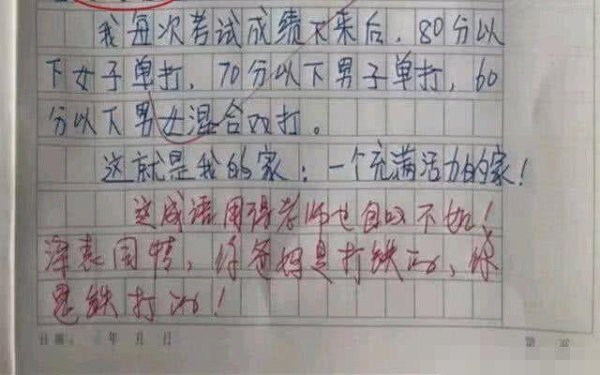 我每次考试成绩下来后，80分以
下女子单打，70分以下男子单打，60
分以下男女混合双打。
这就是我的家：一个充满活力的家！
这成语用得老师也自叹不如！
浑表同情，你爸妈是打铁的，你
是铁打的！
年 月 日